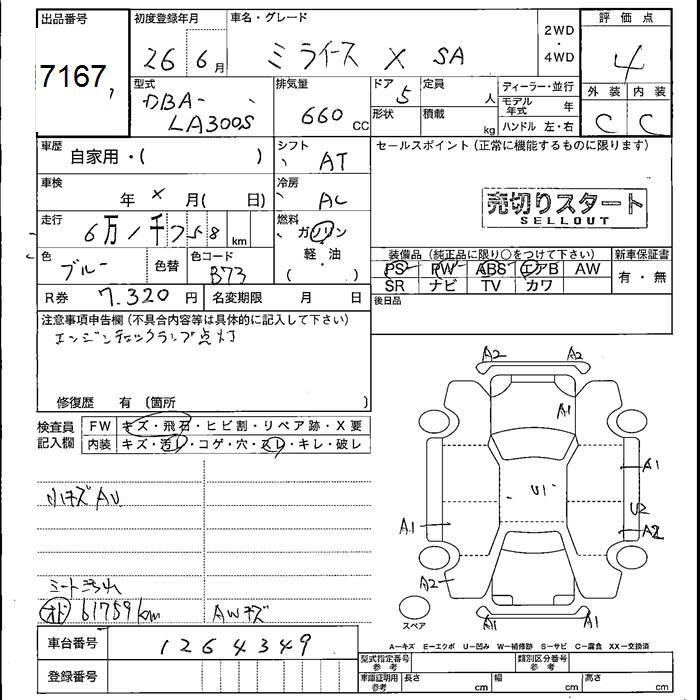 出品番号 初度登録年月 車名・グレード 2WD・4WD 評価点
7167 26 6月 ミライース X SA 4
型式 排気量 ドア 定員 ディーラー・並行 外装 内装
DBA- 5 人 モデル年式 年 C C
LA300S 660 cc 形状 積載 kg ハンドル 左・右
車歴 シフト セールスポイント(正常に機能するものに限ります)
自家用・( ) AT
車検 冷房
年 × 月( 日) AC 売切りスタート
SELLOUT
走行 燃料
6万1千758 km ガソリン
軽・油
( )
装備品(純正品に限り○をつけて下さい) 新車保証書
色 ブルー 色替 色コード B73 PS PW ABS エアB AW 有・無
SR ナビ TV カワ
R券 7.320円 名変期限 月 日 後日品
注意事項申告欄(不具合内容等は具体的に記入して下さい)
エンジンチェックランプ点灯
修復歴 有(箇所 )
検査員記入欄 FW キズ・飛石・ヒビ割・リペア跡・X要
内装 キズ・汚レ・コゲ・穴・スレ・キレ・破レ
A2 A2
A1
A1
U1
U2
A1 A2
A2
A1 A1
スペア
小キズAU
シート汚れ
オド 61759km AWキズ
A—キズ E—エクボ U—凹み W—補修跡 S—サビ C—腐食 XX—交換済
車台番号 1264349
型式指定番号参考 類別区分番号参考
登録番号 車庫証明用参考 長さ cm 幅 cm 高さ cm